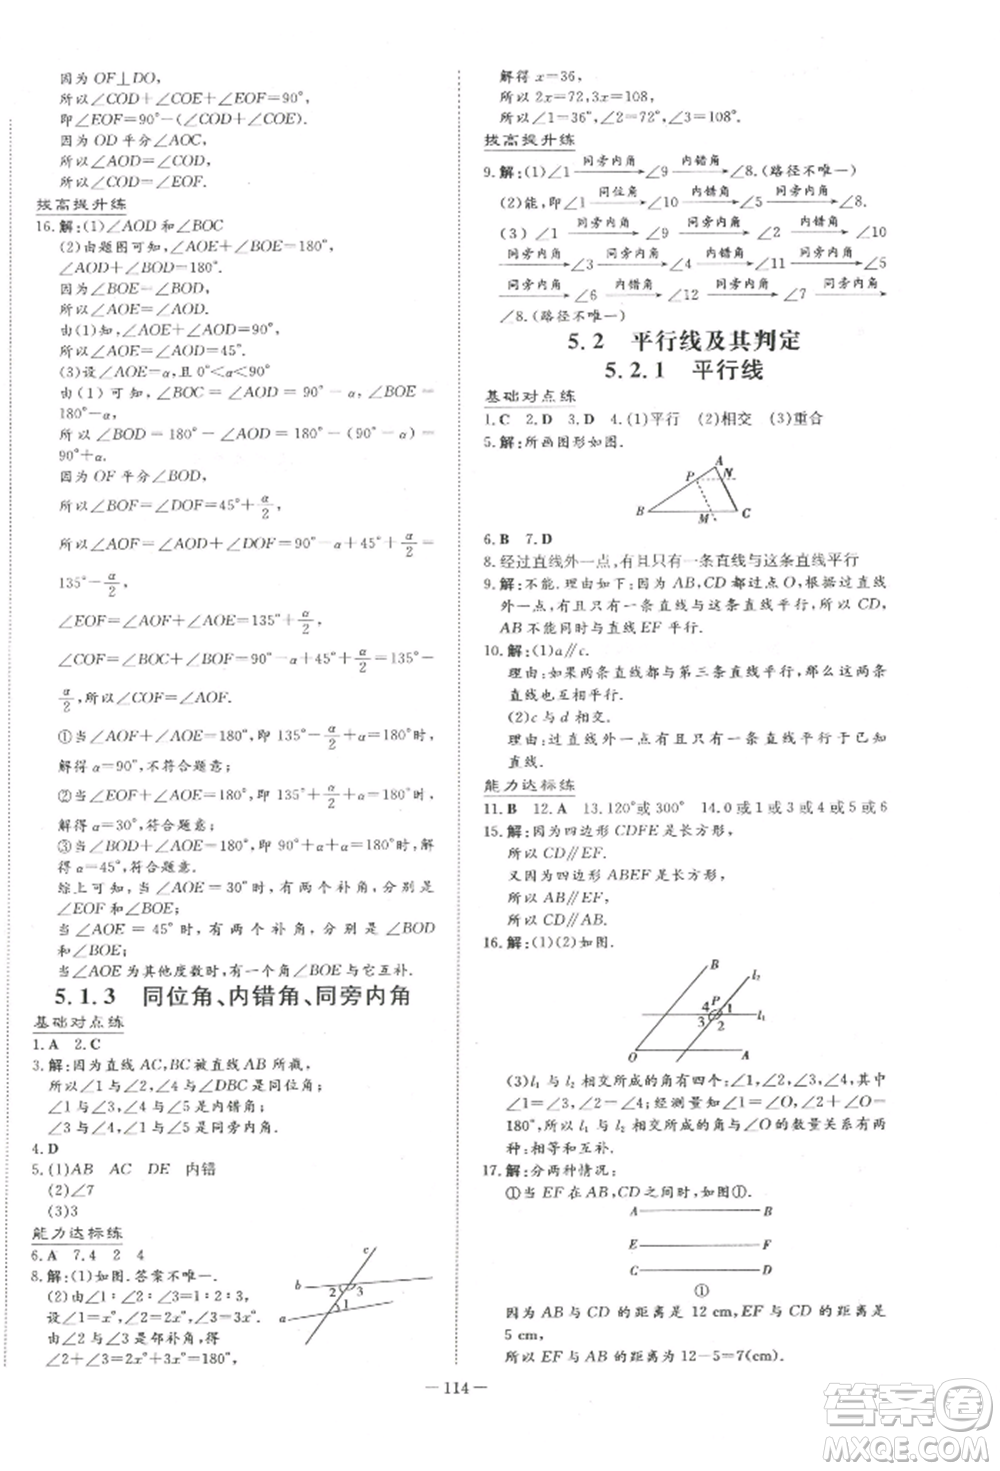 因为 OF⊥DO,
所以∠COD+∠COE+∠EOF=90°,
即∠EOF=90°-∠COD-∠COE.
因为 OD 平分∠AOC,
所以∠AOD=∠COD,
所以∠AOD=∠EOF.
拔高提升练
16.解:(1)∠AOD 和∠BOC
(2)由题图可知,∠AOE+∠BOE=180°,
∠AOD+∠BOD=180°.
因为∠BOE=∠BOD,
所以∠AOE=∠AOD.
由(1)知,∠AOE+∠AOD=90°,
所以∠AOE=∠AOD=45°.
(3)设∠AOE=α,且 0°<α<90°
由(1)可知,∠BOC=∠AOD=90°-α.
所以∠BOD=180°-∠AOD=180°-(90°-α)=
90°+α.
因为 OF 平分∠BOD,
所以∠BOF=∠DOF=45°+α/2,
所以∠AOF=∠AOD+∠DOF=90°-α+45°+α/2=
135°-α/2,
∠EOF=∠AOF+∠AOE=135°+α/2,
∠COF=∠BOC+∠BOF=90°-α+45°+α/2=135°-
α/2,所以∠COF=∠AOF.
①当∠AOF+∠AOE=180°,即 135°-α/2+α=180°,
解得 α=90°,不符合题意;
②当∠EOF+∠AOE=180°,即 135°+α/2+α=180°,
解得 α=30°,符合题意;
③当∠BOD+∠AOE=180°,即 90°+α+α=180°,解
得 α=45°,符合题意.
综上可知,当∠AOE=30°时,有两个补角,分别是
∠EOF 和∠BOE;
当∠AOE=45°时,有两个补角,分别是∠BOD
和∠BOE;
当∠AOE 为其他度数时,有一个角∠BOE 与它互补.
5.1.3 同位角、内错角、同旁内角
基础对点练
1.A 2.C
3.解:因为直线 AC,BC 被直线 AB 所截,
所以∠1与∠2,∠4与∠DBC 是同位角;
∠1与∠3,∠4与∠5是内错角;
∠3与∠4,∠1与∠5是同旁内角.
4.D
5.(1)AB AC DE 内错
(2)∠7
(3)3
能力达标练
6.A 7.4 2 4
8.解:(1)如图.答案不唯一.
(2)因为∠1=2∠2,∠3=3∠2,
设∠1=x°,则∠2=2x°,∠3=3x°.
由∠2与∠3是邻补角,得
∠2+∠3=2x°+3x°=180°,
c
b
2
3
1
a
解得 x=36,
所以 2x=72,3x=108,
所以∠1=36°,∠2=72°,∠3=108°.
拔高提升练
9.解:(1)∠1 同旁内角 ∠9 内错角 ∠8.(路径不唯一)
(2)能,即∠1 同位角 ∠9 内错角 ∠8.(路径不唯一)
(3)∠1 同旁内角 ∠9 内错角 ∠2 同旁内角 ∠10
同旁内角 ∠3 同旁内角 ∠11 内错角 ∠4 同旁内角 ∠5
同旁内角 ∠6 内错角 ∠12 同旁内角 ∠7 同旁内角
∠8.(路径不唯一)
5.2 平行线及其判定
5.2.1 平行线
基础对点练
1.C 2.D 3.D 4.(1)平行 (2)相交 (3)重合
5.解:所画图形如图.
A
P
N
B
M
C
6.B 7.D
8.经过直线外一点,有且只有一条直线与这条直线平行
9.解:不能.理由如下:因为 AB,CD 都过点 O,过直线
外一点,有且只有一条直线与这条直线平行,所以 CD,
AB 不能同时与直线 EF 平行.
10.解:(1)a∥c.
理由:如果两条直线都与第三条直线平行,那么这两条
直线也互相平行.
(2)c 与 d 相交.
理由:过直线外一点有且只有一条直线平行于已知
直线.
能力达标练
11.B 12.A 13.120°或 300° 14.0 或 1 或 2 或 3 或 4 或 5 或 6
15.解:因为四边形 CDFE 是长方形,
所以 CD∥EF.
又因为四边形 ABEF 是长方形,
所以 AB∥EF,
所以 CD∥AB.
16.解:(1)(2)如图.
B
l₂
P
4
1
3
2
l₁
O
A
(3)l₁ 与 l₂ 相交所成的角有四个:∠1,∠2,∠3,∠4,其
中∠1=∠3,∠2=∠4;经测量知∠1=∠O,∠2+∠O=
180°,所以 l₁ 与 l₂ 相交所成的角与∠O 的数量关系有两
种:相等和互补.
17.解:分两种情况:
①当 EF 在 AB,CD 之间时,如图①.
A B
E F
C D
①
因为 AB 与 CD 的距离是 12 cm,EF 与 CD 的距离是
5 cm,
所以 EF 与 AB 的距离为 12-5=7(cm).
— 114 —
答案圈
MXQE.COM